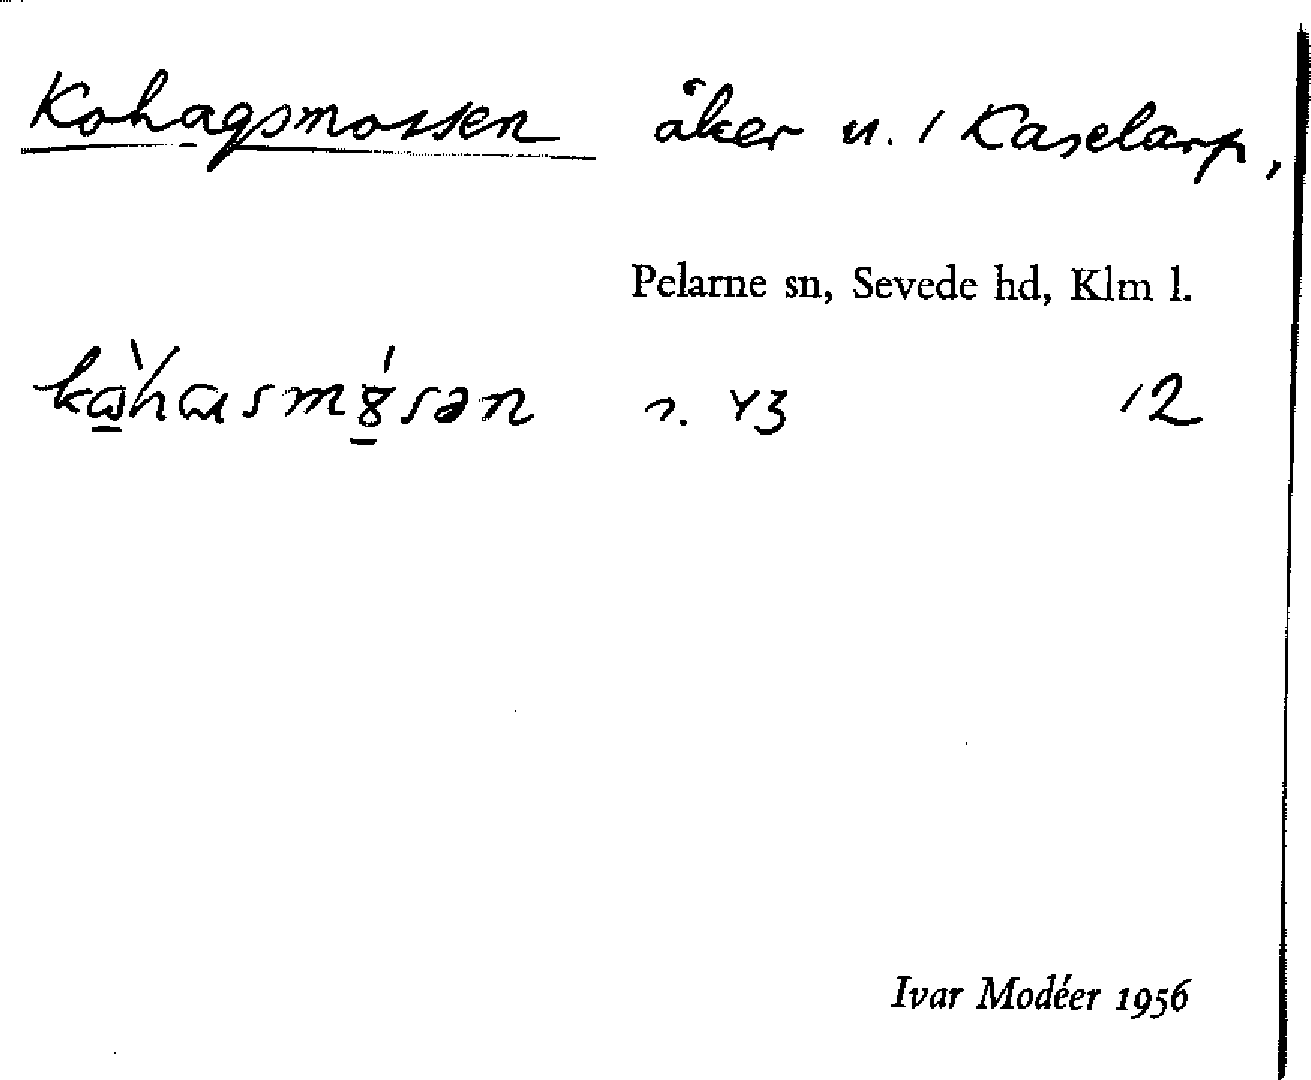 Kohagsmossen åker u. 1 Kaselarp,
Pelarne sn, Sevede hd, Klm l.
s. 43 12
Ivar Modéer 1956